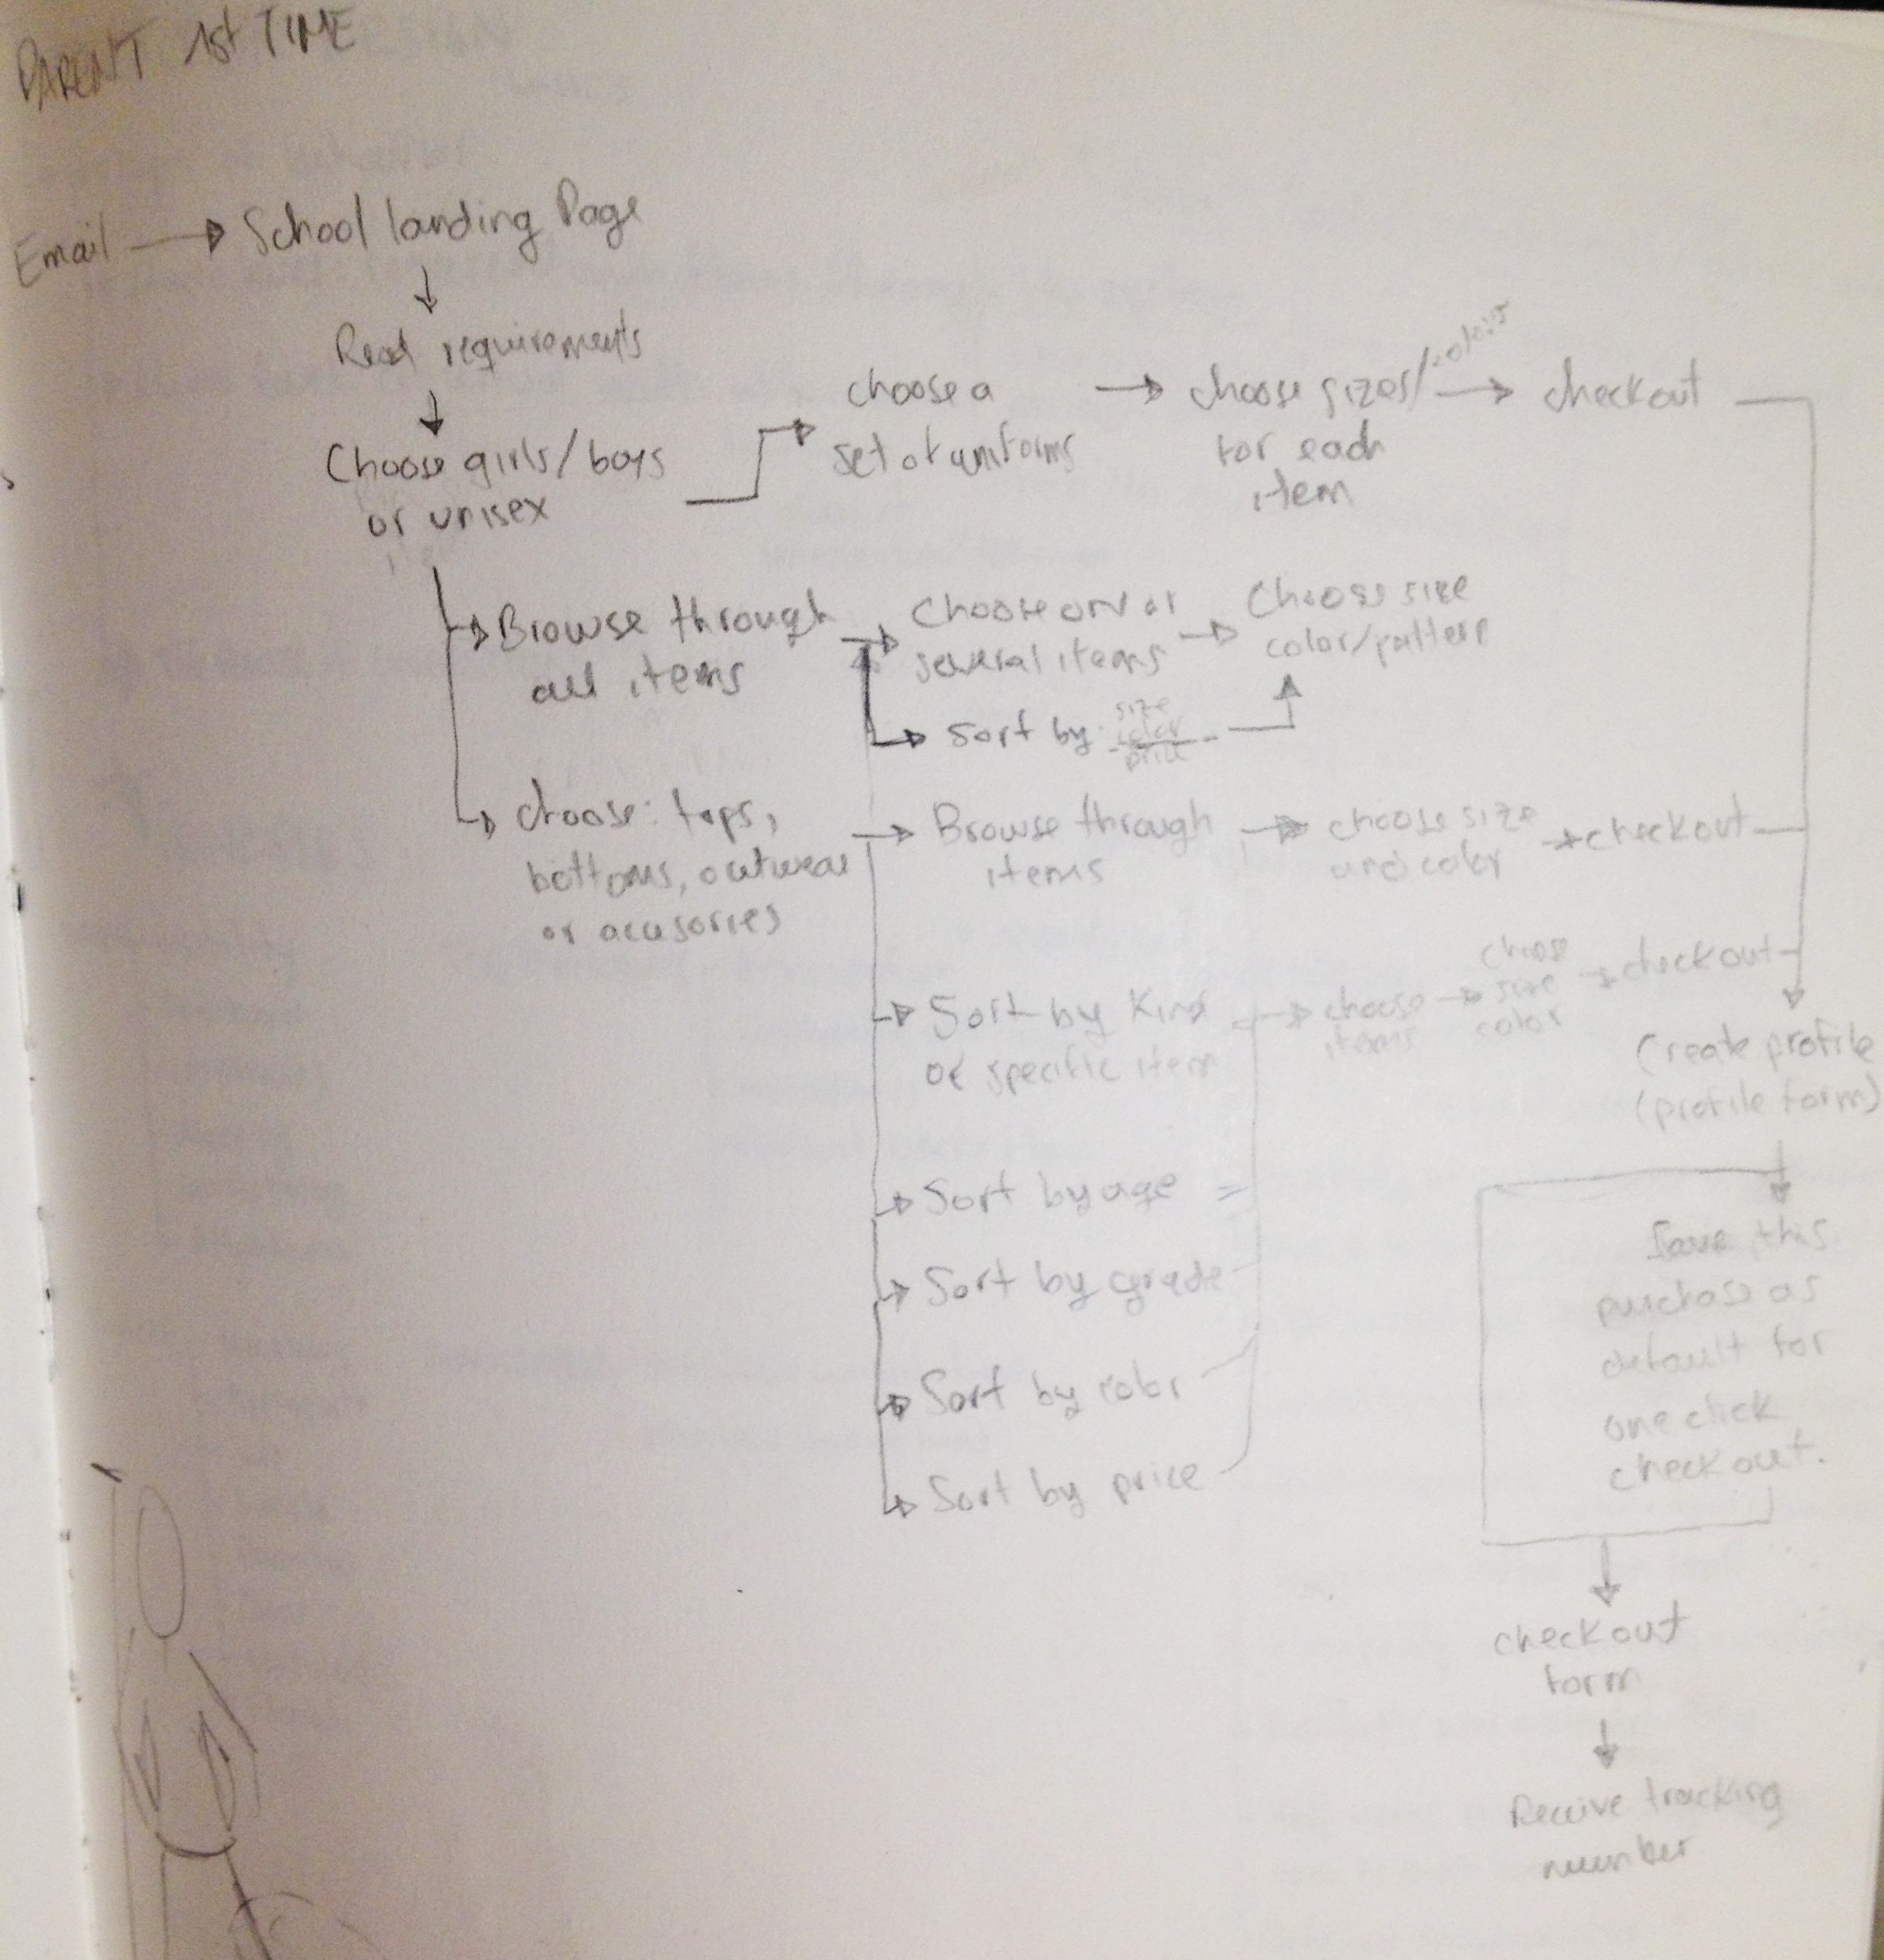 PARENT 1st TIME
Email → School landing Page
Read requirements
Choose girls/boys
or unisex
choose a
set of uniforms
choose sizes/colors
for each
item
checkout
Browse through
all items
Choose one or
several items
Choose size
color/pattern
Sort by:
size
color
price
choose: tops,
bottoms, outwear
or acusories
Browse through
items
choose size
and color
checkout
Sort by Kind
of specific item
choose
items
choose
size
color
checkout
Sort by age
Sort by grade
Sort by color
Sort by price
Create profile
(profile form)
Save this
purchase as
default for
one click
checkout.
checkout
form
Receive tracking
number